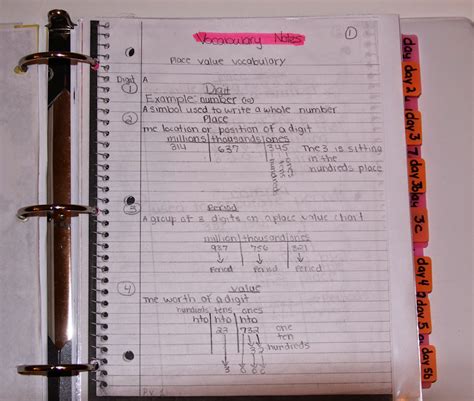 Vocabulary Notes
1
Place value vocabulary
Digit A
1 Digit
Example: number
A simbol used to write a whole number
2 Place
The location or position of a digit
millions thousands ones
314 637 345 The 3 is sitting
in the
hundreds place
3 Period
A group of 3 digits on a place value chart
million thousand ones
937 756 321
Period Period Period
4 value
The worth of a digit
hundreds tens ones
hto hto hto
23 732 one
ten
hundreds
day
day 2
day 3
3c
day 4
day 5
day 5b